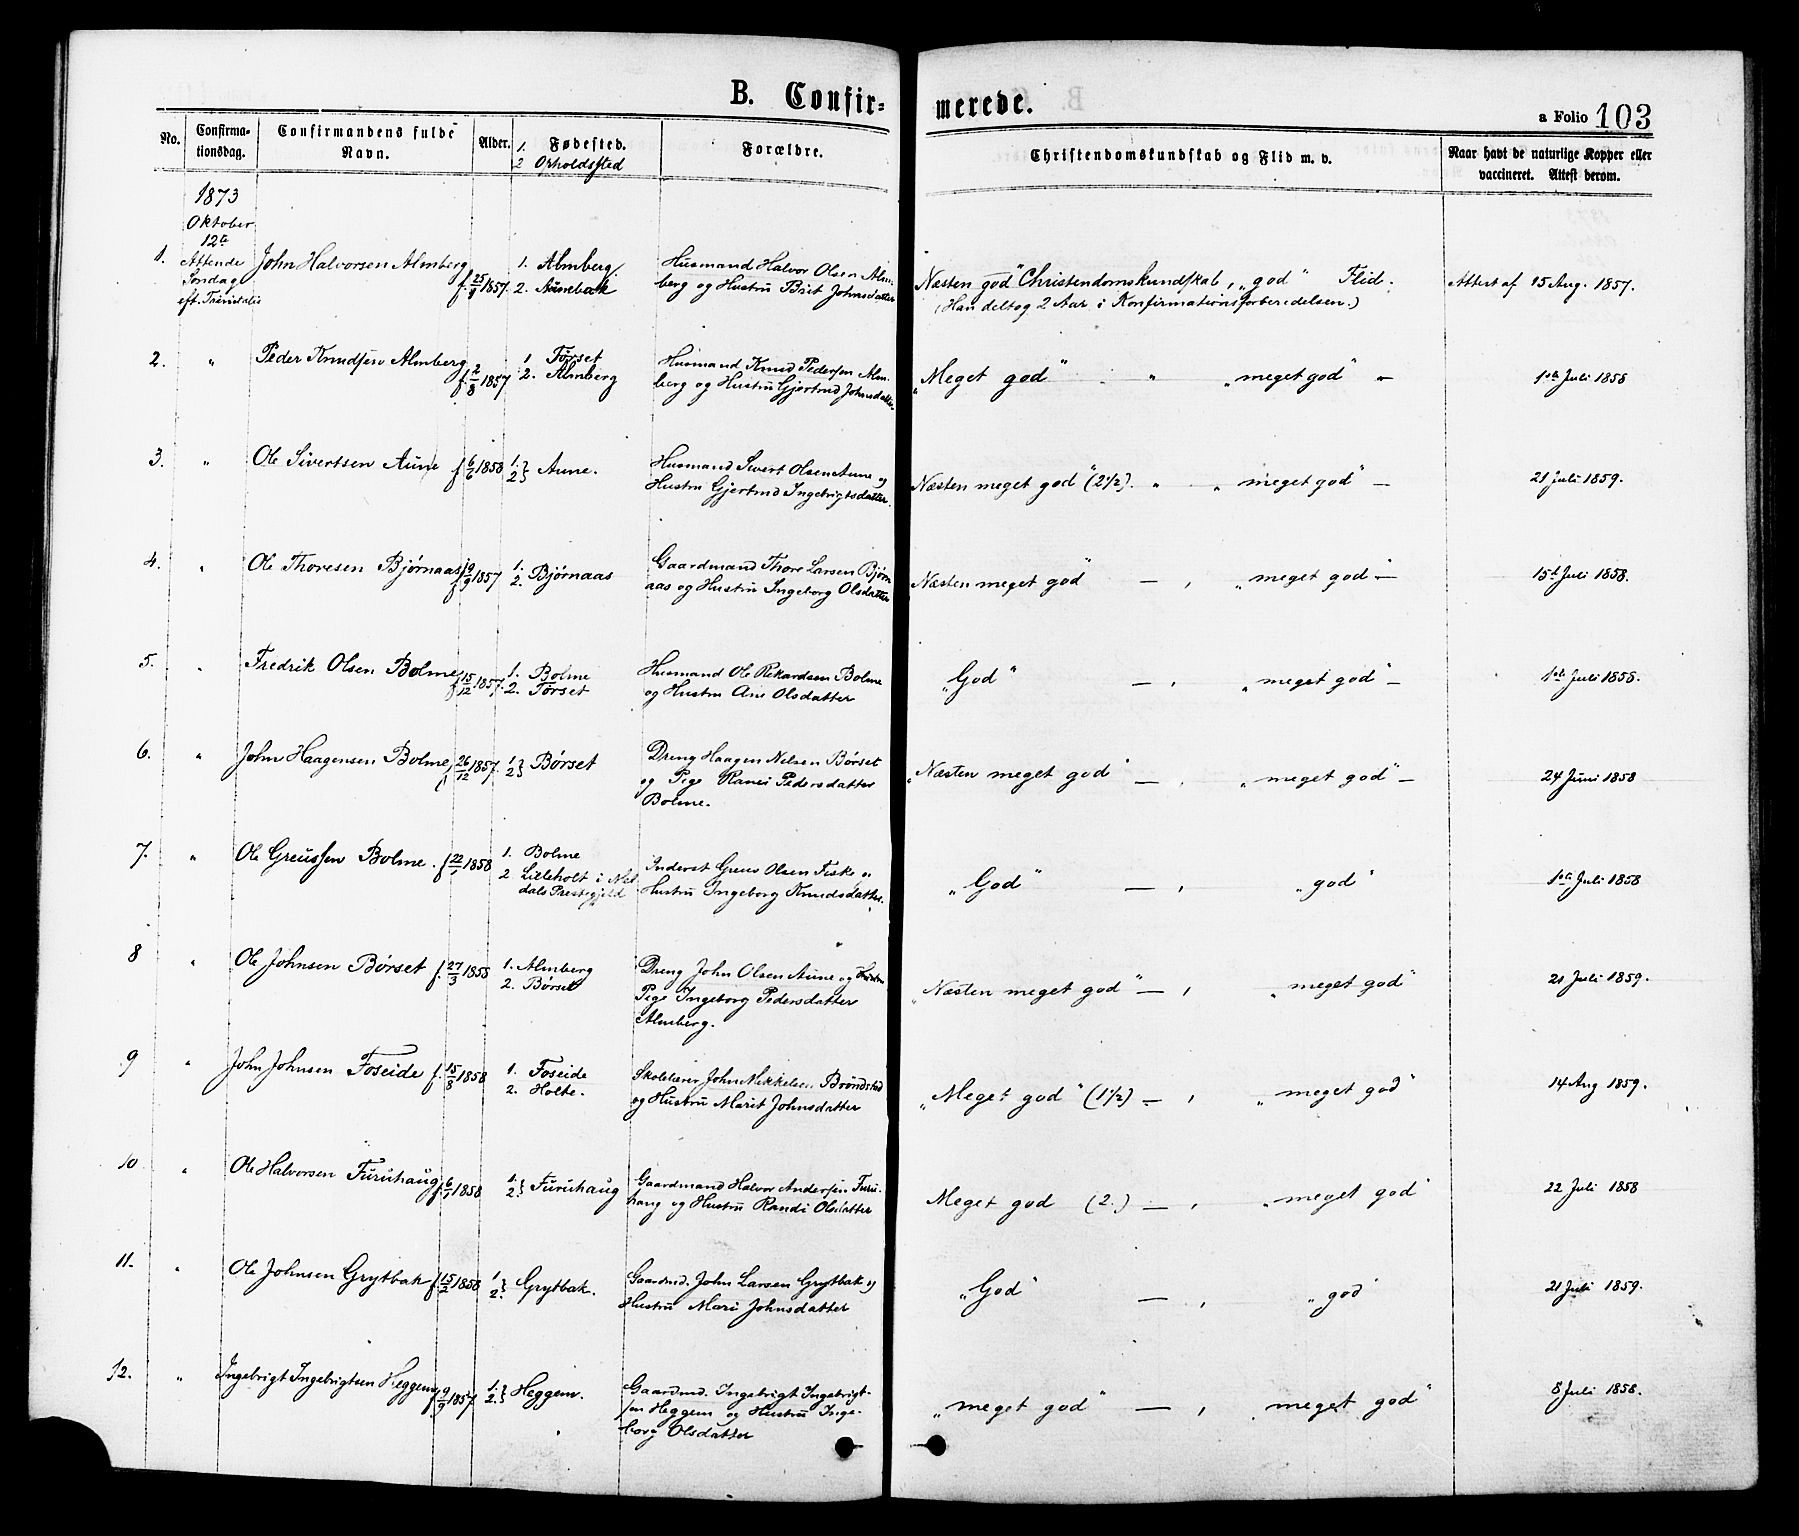 B. Confir-
merede.
a Folio 103
No.
Confirma-
tionsdag.
Confirmandens fulde
Navn.
Alder.
1. Fødested.
2 Opholdssted
Forældre.
Christendomskundskab og Flid m. v.
Naar havt de naturlige Kopper eller
vaccineret. Attest derom.
1873
Oktober
12te
Attende
Søndag
eft. Trinitatis
1. John Halvorsen Almberg f. 25/8 1857.
1. Almberg.
2. Aunebak
Husmand Halvor Olsen Alm-
berg og Hustru Brit Johnsdatter
Næsten god" Christendomskundskab, "god" Flid.
(Han deltog 2 Aar i Konfirmationsforberedelsen.)
Attest af 15 Aug. 1857.
2. " Peder Knudsen Almberg f. 2/8 1857
1. Tørset
2. Almberg
Husmand Knud Pedersen Alm-
berg og Hustru Gjertrud Johnsdatter.
"Meget god" " "meget god" "
1ste Juli 1858
3. " Ole Sivertsen Aune f 6/6 1858
1.
2} Aune.
Husmand Sivert Olsen Aune og
Hustru Gjertrud Ingebrigtsdatter.
Næsten meget god" (2½). " "meget god" —
21 Juli 1859.
4. " Ole Thoresen Bjørnaas f 19/9 1857
1.
2. Bjørnaas
Gaardmand Thore Larsen Bjørn
aas og Hustru Ingeborg Olsdatter
Næsten meget god" — , "meget god" —
15de Juli 1858.
5. " Fredrik Olsen Bolme f 15/12 1857.
1. Bolme
2. Tørset
Husmand Ole Rikardsen Bolme
og Hustru Ane Olsdatter
"God" — , "meget god" —
1ste Juli 1858.
6. " John Haagensen Bolme f 26/12 1857.
1.
2} Børset
Dreng Haagen Nelsen Børset
og Pige Ranei Pedersdatter
Bolme.
"Næsten meget god" — , "meget god" —
24 Juni 1858
7. " Ole Greussen Bolme. f 22/1 1858
1. Bolme
2 Lilleholt i Mel-
dals Prestegjeld
Inderst Greus Olsen Fiske og
Hustru Ingeborg Knudsdatter.
"God" — , "god"
1ste Juli 1858
8 " Ole Johnsen Børset f. 27/3 1858
1. Almberg
2. Børset
Dreng John Olsen Aune og
Pige Ingeborg Pedersdatter
Almberg.
"Næsten meget god" — , "meget god"
21 Juli 1859.
9 " John Johnsen Foseide f. 15/8 1858
1. Foseide
2. Holte.
Skolelærer John Mikkelsen Brøndstad
og Hustru Marit Johnsdatter
"Meget god" (1½) — , "meget god"
14 Aug 1859.
10 " Ole Halvorsen Furuhaug f. 6/1 1858
1.
2.} Furuhaug
Gaardmand Halvor Andersen Furu-
haug og Hustru Randi Olsdatter
Meget god (2.) — , "meget god"
22 Juli 1858
11. " Ole Johnsen Grytbak f. 15/2 1858
1
2.} Grytbak.
Gaardmd. John Larsen Grytbak og
Hustru Mari Johnsdatter
"God" — , "god"
21 Juli 1859.
12. " Ingebrigt Ingebrigtsen Heggem f 9/9 1857
1.
2.} Heggem.
Gaardmd. Ingebrigt Ingebrigt-
sen Heggem og Hustru Inge-
borg Olsdatter
"meget god" — , "meget god"
8 Juli 1858.